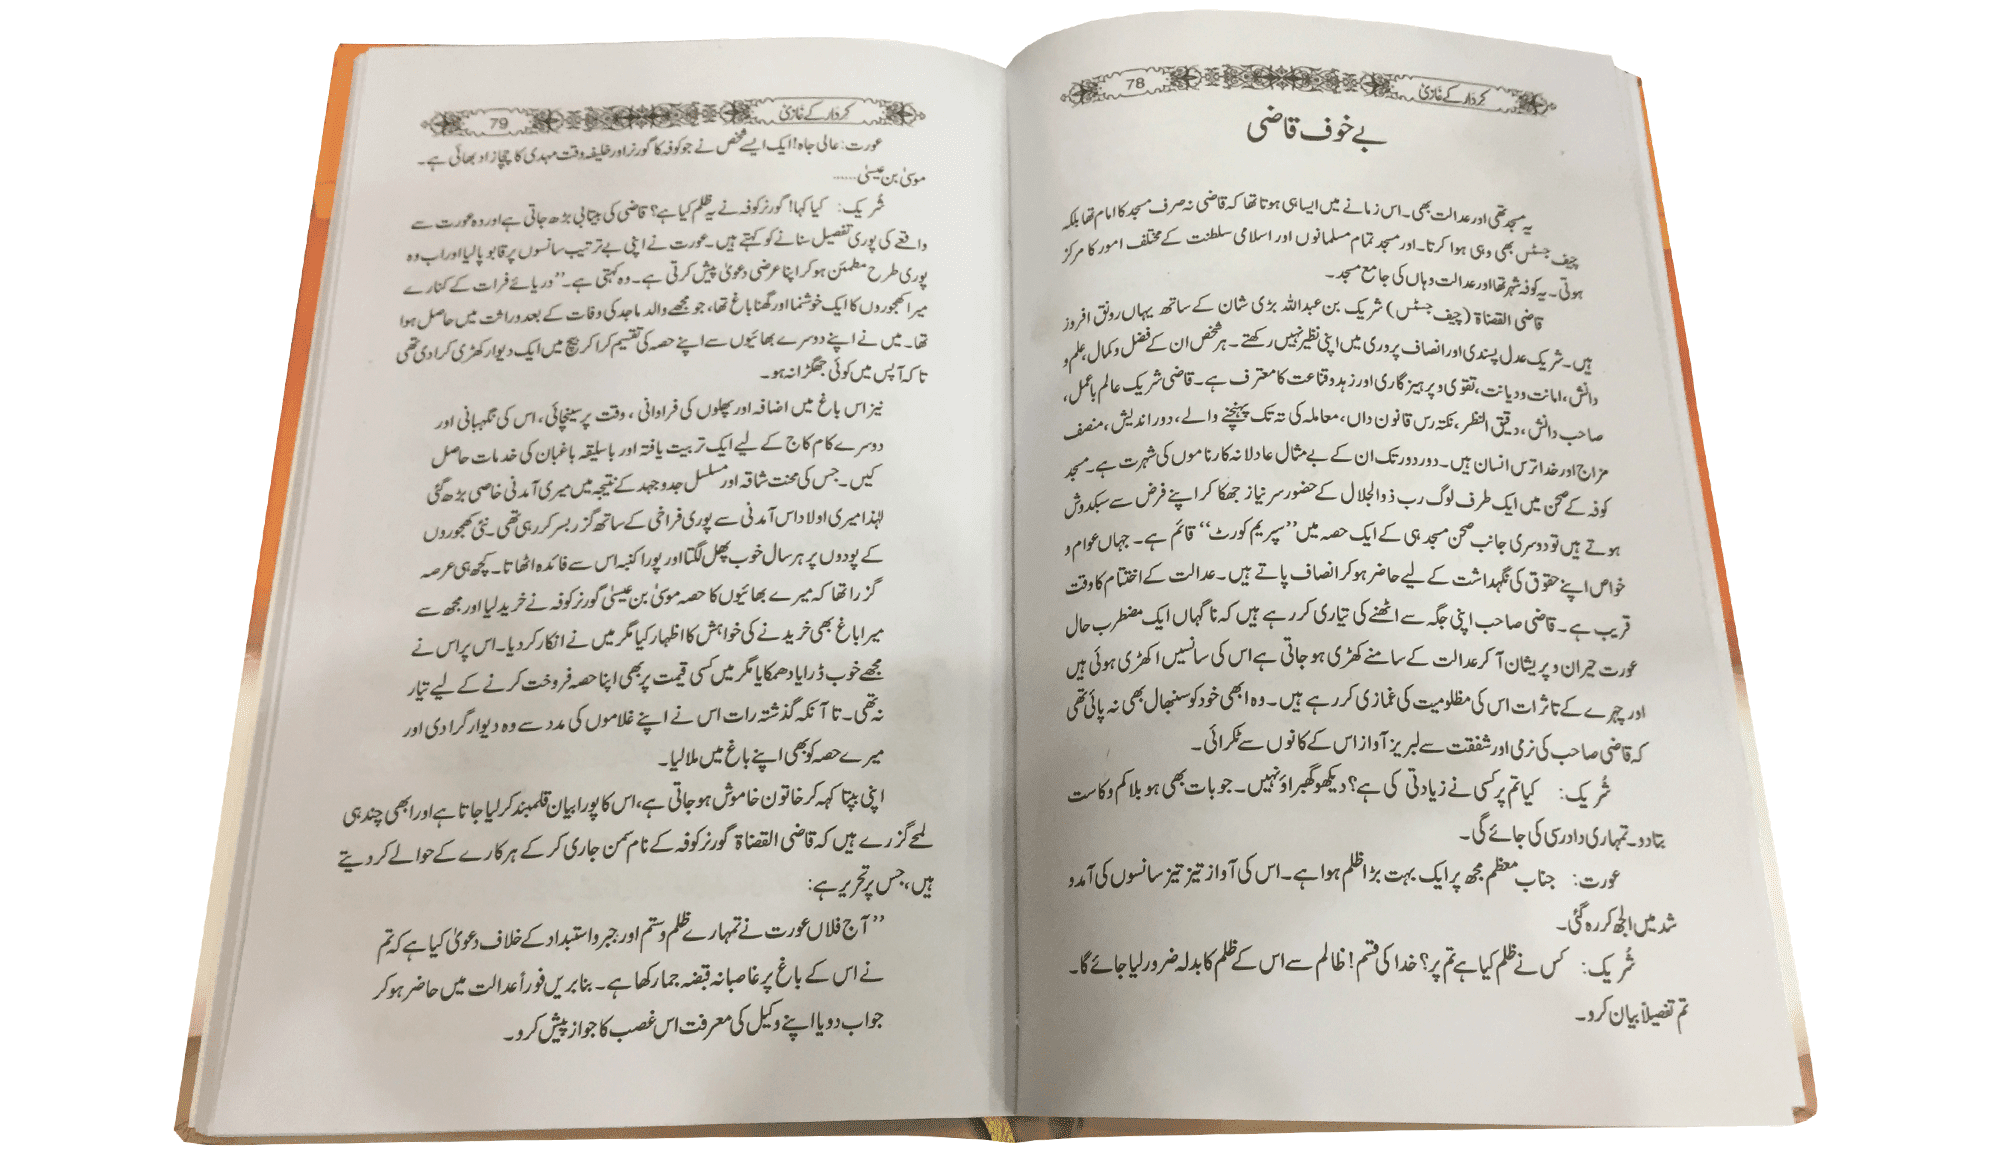 کردار کے غازی 78
بے خوف قاضی
یہ مسجد تھی اور عدالت بھی۔ اس زمانے میں ایسا ہی ہوتا تھا کہ قاضی نہ صرف مسجد کا امام تھا بلکہ
چیف جسٹس بھی وہی ہوا کرتا۔ اور مسجد تمام مسلمانوں اور اسلامی سلطنت کے مختلف امور کا مرکز
ہوتی۔ یہ کوفہ شہر تھا اور عدالت وہاں کی جامع مسجد۔
قاضی القضاۃ (چیف جسٹس) شریک بن عبداللہ بڑی شان کے ساتھ یہاں رونق افروز
ہیں۔ شریک عدل پسندی اور انصاف پروری میں اپنی نظیر نہیں رکھتے۔ ہر شخص ان کے فضل و کمال، علم و
دانش، امانت و دیانت، تقوی و پرہیز گاری اور زہد و قناعت کا معترف ہے۔ قاضی شریک عالم باعمل،
صاحب دانش، دقیق النظر، نکتہ رس قانون داں، معاملہ کی تہ تک پہنچنے والے، دور اندیش، منصف
مزاج اور خدا ترس انسان ہیں۔ دور دور تک ان کے بے مثال عادلانہ کارناموں کی شہرت ہے۔ مسجد
کوفہ کے صحن میں ایک طرف لوگ رب ذوالجلال کے حضور سر نیاز جھکا کر اپنے فرض سے سبکدوش
ہوتے ہیں تو دوسری جانب صحن مسجد ہی کے ایک حصہ میں ”سپریم کورٹ“ قائم ہے۔ جہاں عوام و
خواص اپنے حقوق کی نگہداشت کے لیے حاضر ہو کر انصاف پاتے ہیں۔ عدالت کے اختتام کا وقت
قریب ہے۔ قاضی صاحب اپنی جگہ سے اٹھنے کی تیاری کر رہے ہیں کہ ناگہاں ایک مضطرب حال
عورت حیران و پریشان آ کر عدالت کے سامنے کھڑی ہو جاتی ہے اس کی سانسیں اکھڑی ہوئی ہیں
اور چہرے کے تاثرات اس کی مظلومیت کی غمازی کر رہے ہیں۔ وہ ابھی خود کو سنبھال بھی نہ پائی تھی
کہ قاضی صاحب کی نرمی اور شفقت سے لبریز آواز اس کے کانوں سے ٹکرائی۔
شُریک: کیا تم پر کسی نے زیادتی کی ہے؟ دیکھو گھبراؤ نہیں۔ جو بات بھی ہو بلا کم و کاست
بتا دو۔ تمہاری دادرسی کی جائے گی۔
عورت: جناب معظم مجھ پر ایک بہت بڑا ظلم ہوا ہے۔ اس کی آواز تیز تیز سانسوں کی آمد و
شد میں الجھ کر رہ گئی۔
شُریک: کس نے ظلم کیا ہے تم پر؟ خدا کی قسم! ظالم سے اس کے ظلم کا بدلہ ضرور لیا جائے گا۔
تم تفصیلاً بیان کرو۔
کردار کے غازی 79
عورت: عالی جاہ! ایک ایسے شخص نے جو کوفہ کا گورنر اور خلیفہ وقت مہدی کا چچا زاد بھائی ہے۔
موسیٰ بن عیسیٰ......
شُریک: کیا کہا! گورنر کوفہ نے یہ ظلم کیا ہے؟ قاضی کی بیتابی بڑھ جاتی ہے اور وہ عورت سے
واقعے کی پوری تفصیل سنانے کو کہتے ہیں۔ عورت نے اپنی بے ترتیب سانسوں پر قابو پالیا اور اب وہ
پوری طرح مطمئن ہو کر اپنا عرضی دعویٰ پیش کرتی ہے۔ وہ کہتی ہے۔ ”دریائے فرات کے کنارے
میرا کھجوروں کا ایک خوشنما اور گھنا باغ تھا، جو مجھے والد ماجد کی وفات کے بعد وراثت میں حاصل ہوا
تھا۔ میں نے اپنے دوسرے بھائیوں سے اپنے حصہ کی تقسیم کرا کر بیچ میں ایک دیوار کھڑی کرا دی تھی
تا کہ آپس میں کوئی جھگڑا نہ ہو۔
نیز اس باغ میں اضافہ اور پھلوں کی فراوانی، وقت پر سینچائی، اس کی نگہبانی اور
دوسرے کام کاج کے لیے ایک تربیت یافتہ اور باسلیقہ باغبان کی خدمات حاصل
کیں۔ جس کی محنت شاقہ اور مسلسل جدوجہد کے نتیجہ میں میری آمدنی خاصی بڑھ گئی
لہٰذا میری اولاد اس آمدنی سے پوری فراخی کے ساتھ گزر بسر کر رہی تھی۔ نئی کھجوروں
کے پودوں پر ہر سال خوب پھل لگتا اور پورا کنبہ اس سے فائدہ اٹھاتا۔ کچھ ہی عرصہ
گزرا تھا کہ میرے بھائیوں کا حصہ موسیٰ بن عیسیٰ گورنر کوفہ نے خرید لیا اور مجھ سے
میرا باغ بھی خریدنے کی خواہش کا اظہار کیا مگر میں نے انکار کر دیا۔ اس پر اس نے
مجھے خوب ڈرایا دھمکایا مگر میں کسی قیمت پر بھی اپنا حصہ فروخت کرنے کے لیے تیار
نہ تھی۔ تا آنکہ گذشتہ رات اس نے اپنے غلاموں کی مدد سے وہ دیوار گرا دی اور
میرے حصہ کو بھی اپنے باغ میں ملا لیا۔
اپنی بپتا کہہ کر خاتون خاموش ہو جاتی ہے، اس کا پورا بیان قلمبند کر لیا جاتا ہے اور ابھی چند ہی
لمحے گزرے ہیں کہ قاضی القضاۃ گورنر کوفہ کے نام سمن جاری کر کے ہرکارے کے حوالے کر دیتے
ہیں، جس پر تحریر ہے:
”آج فلاں عورت نے تمہارے ظلم و ستم اور جبر و استبداد کے خلاف دعویٰ کیا ہے کہ تم
نے اس کے باغ پر غاصبانہ قبضہ جما رکھا ہے۔ بنابریں فوراً عدالت میں حاضر ہو کر
جواب دو یا اپنے وکیل کی معرفت اس غصب کا جواز پیش کرو۔